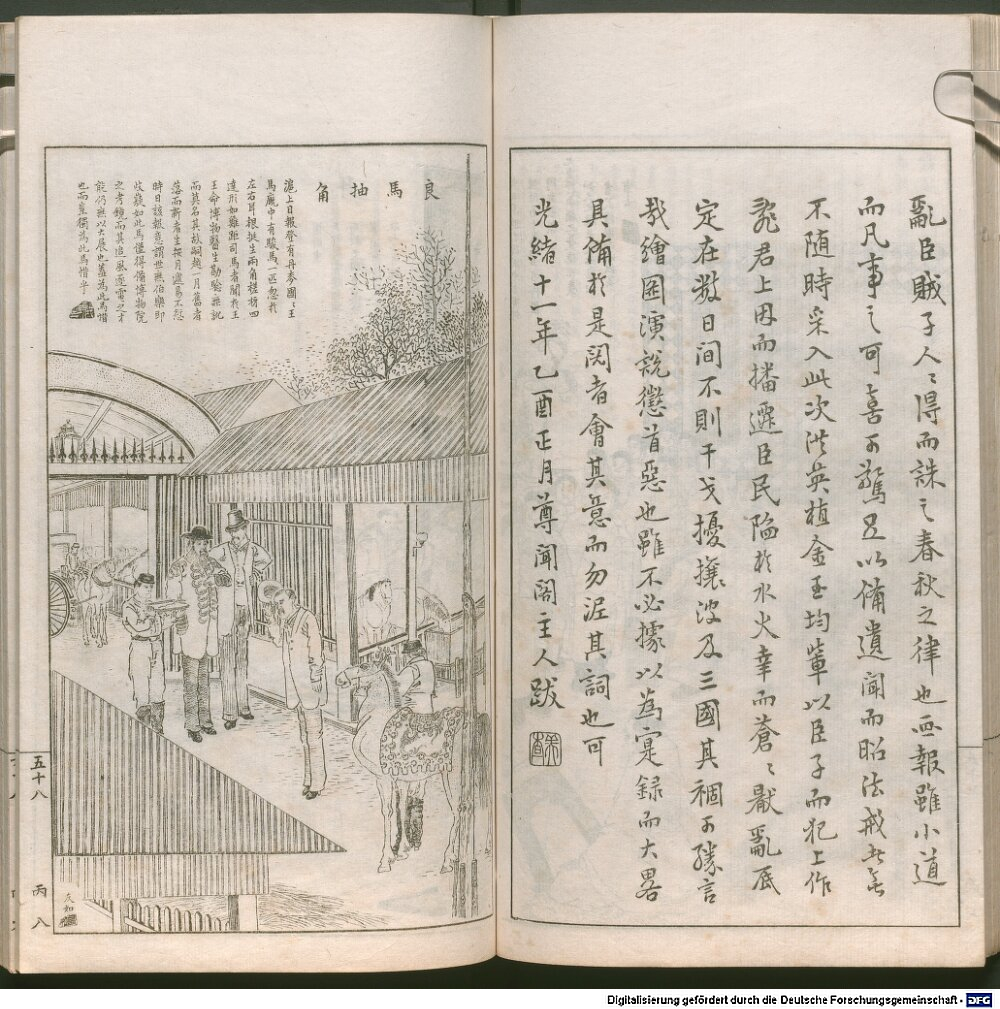 亂臣賊子人〻得而誅之春秋之律也畫報雖小道
而凡事之可喜可驚足以備遺聞而昭法戒者無
不隨時采入此次洪英植金玉均輩以臣子而犯上作
亂君上因而播遷臣民陷於水火幸而蒼〻厭亂底
定在數日間不則干戈擾攘波及三國其禍可勝言
哉繪圖演說懲首惡也雖不必據以為寔錄而大畧
具備於是閱者會其意而勿泥其詞也可
光緒十一年乙酉正月尊聞閣主人跋
良馬抽角
滬上日報登有丹麥國〻王
馬廄中有駿馬一匹忽於
左右耳根挺生兩角槎枒四
達形如雞距司馬者聞於王
王命博物醫生勘驗無訛
而莫名其故嗣越一月舊者
落而新者生按月遞易不愆
時日該報意謂世無伯樂即
歧嶷如此馬僅得備博物院
之考鏡而其追風逐電之才
能仍無以大展也蓋為此馬惜
也而豈獨為此馬惜乎
友如
五十八
丙八
Digitalisierung gefördert durch die Deutsche Forschungsgemeinschaft - DFG